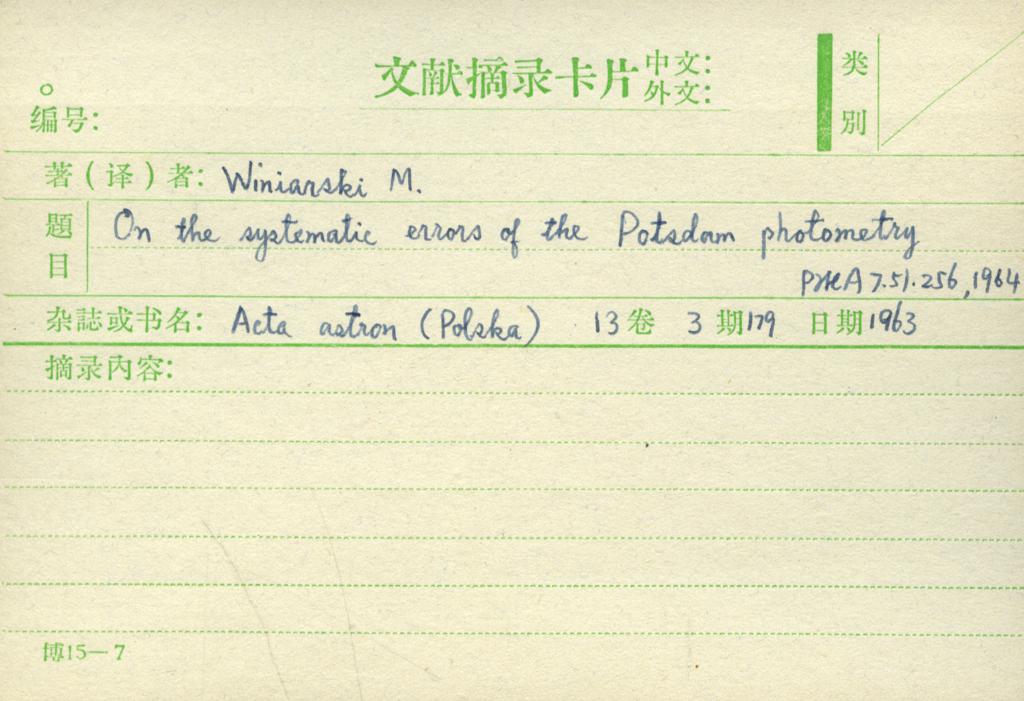 文献摘录卡片 中文:
外文:
类
別
编号:
著(译)者: Winiarski M.
題
目
On the systematic errors of the Potsdam photometry
РЖА 7.51.256, 1964
杂誌或书名: Acta astron (Polska) 13卷 3期179 日期1963
摘录内容:
博15—7